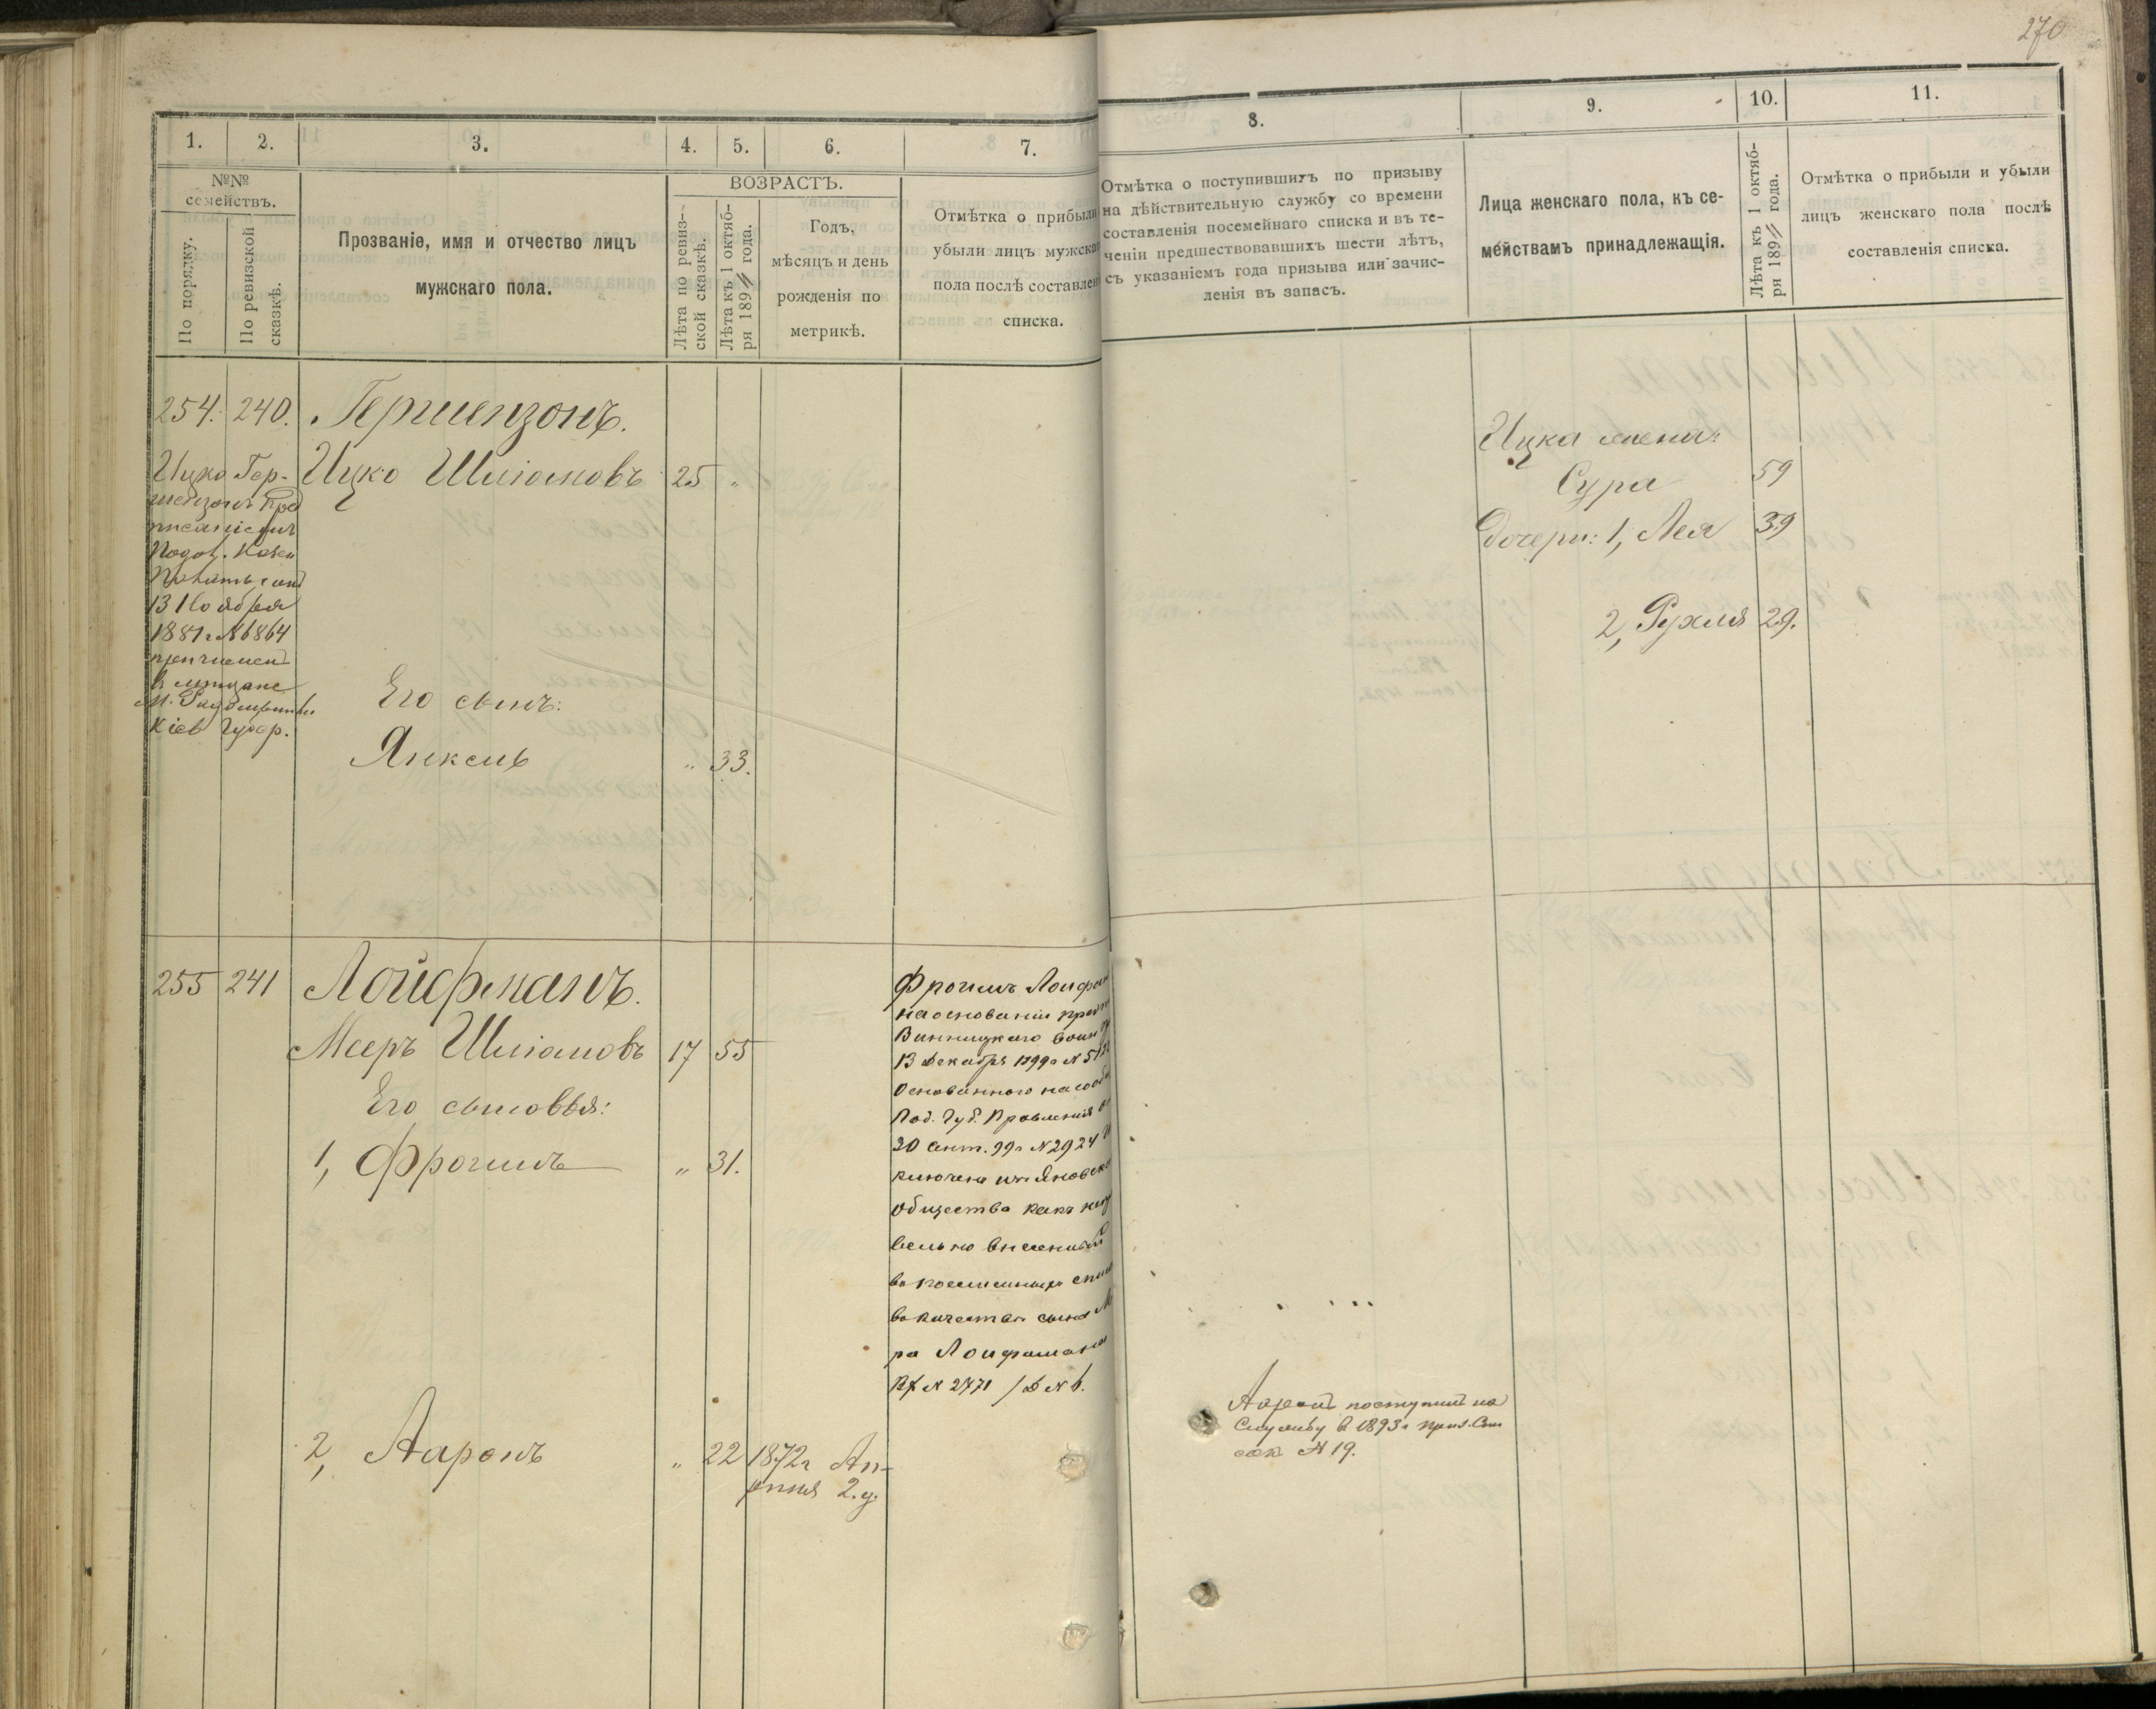 270
1.
2.
3.
4.
5.
6.
7.
8.
9.
10.
11.
№№
семействъ.
По порядку.
По ревизской
сказкѣ.
Прозваніе, имя и отчество лицъ
мужскаго пола.
ВОЗРАСТЪ.
Лѣта по ревиз-
ской сказкѣ.
Лѣта къ 1 октяб-
ря 189 года.
Годъ,
мѣсяцъ и день
рожденія по
метрикѣ.
Отмѣтка о прибыли
убыли лицъ мужска
пола послѣ составлен
списка.
Отмѣтка о поступившихъ по призыву
на дѣйствительную службу со времени
составленія посемейнаго списка и въ те-
ченіи предшествовавшихъ шести лѣтъ,
съ указаніемъ года призыва или зачис-
ленія въ запасъ.
Лица женскаго пола, къ се-
мействамъ принадлежащія.
Лѣта къ 1 октяб-
ря 189 года.
Отмѣтка о прибыли и убыли
лицъ женскаго пола послѣ
составленія списка.
254. 240. Гершензонъ.
Ицко Шліомовъ 25 "
Ицко Гер-
шензонъ пред
писаніемъ
Подол. Казен
Палаты отъ
13 Ноября
1881 г. № 6864
причислен
в мещане
Кіев Губер.
Его сынъ:
Янкель " 33.
Ицка жена:
Сура 59
Дочери: 1, Лея 39
2, Рухля 29.
255 241 Лойфманъ.
Мееръ Шліомовъ 17 55
Его сыновья:
1, Фроимъ " 31.
Фроимъ Лойфм
на основаніи
Винницкаго Воин
13 Декабря 1899 г №
Основанного на сооб
Под. Губ. Правленія
20 Сент. 99 г № 2924
ключенъ изъ Яновска
общества какъ
вельно внесенный
въ посемейный спи
въ качествѣ сына М
ра Лойфмана
№ 2771 / Д № 6.
2, Ааронъ " 22 1872 г Ап-
рѣля 2. д.
Ааронъ поступил на
Службу в 1893 г приз. Спи
сок № 19.